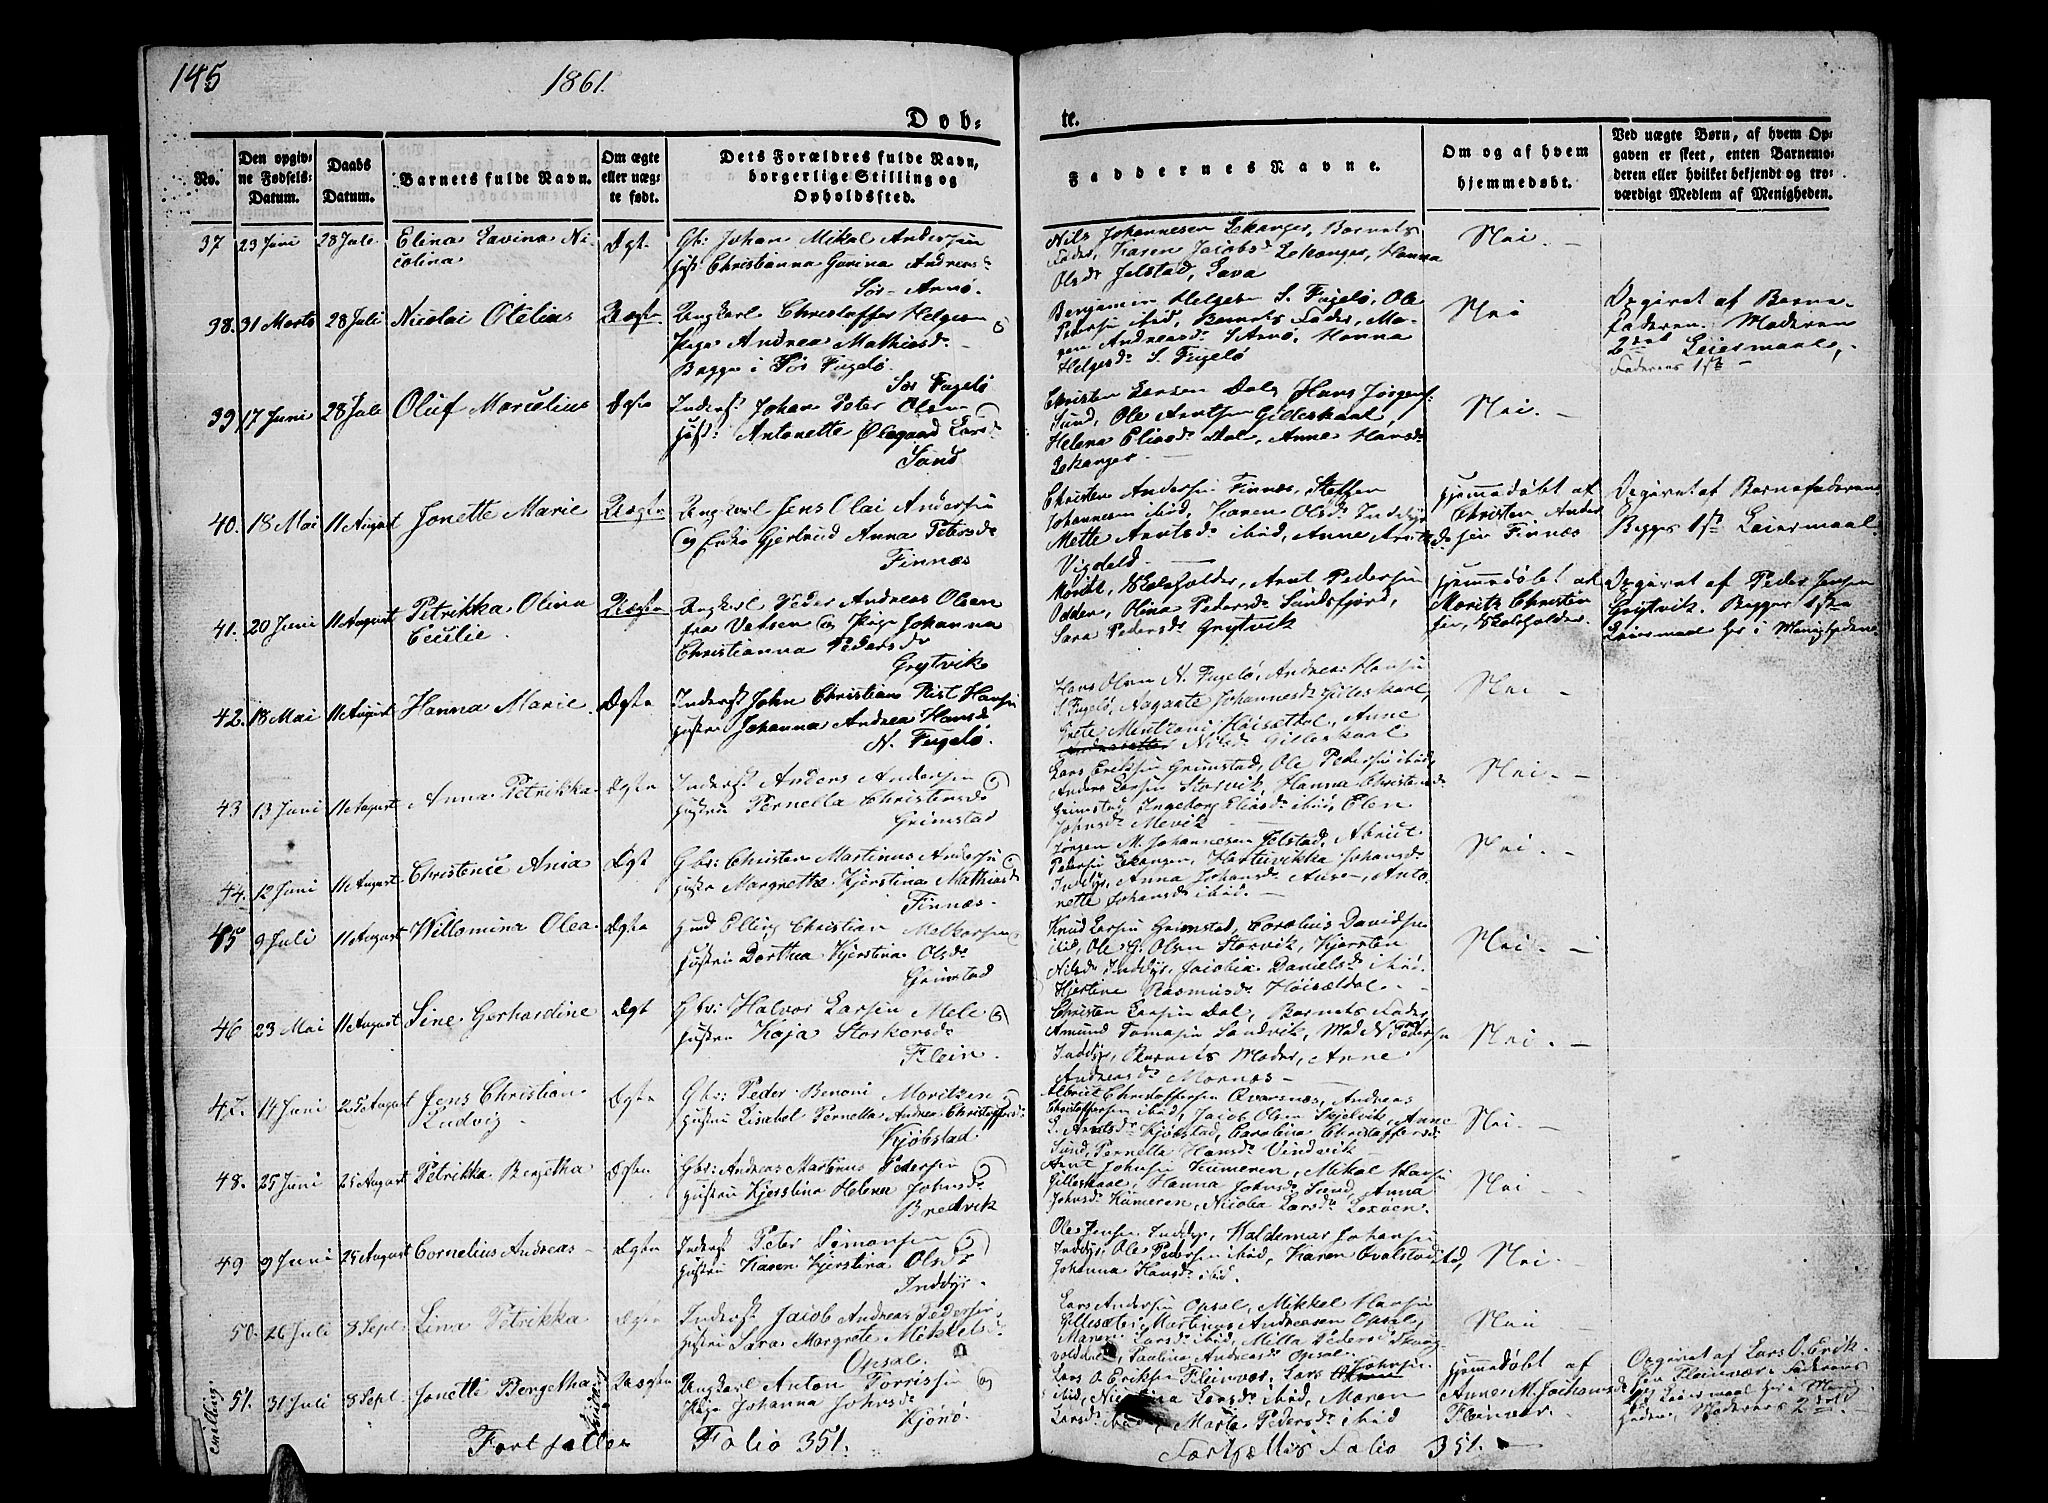 145
1861.
Døb-
te.
No.
Den opgiv-
ne Fødsels-
Datum.
Daabs
Datum.
Barnets fulde Navn.
Om ægte
eller uæg-
te født.
Dets Forældres fulde Navn,
borgerlige Stilling og
Opholdssted.
Faddernes Navne.
Om og af hvem
hjemmedøbt.
Ved uægte Børn, af hvem Op-
gaven er skeet, enten Barnemo-
deren eller hvilket bekjendt og tro-
værdigt Medlem af Menigheden.
37 23 Juni 28 Juli Elina Lavina Ni-
colina
Ægte
Gbr: Johan Mikal Andersen
Christianna Andreasd.
Sør-Arnø.
Nils Johannesen Lekanger, Barnets
Fader, Karen Jacobsd. Lekanger, Hanna
Olsd. Jelstad,
Nei.
38. 31 Marts 28 Juli Nicolai Otelius
Uægte
Ungkarl Christoffer Helgesen
Pige Andrea Mathiasd.
Begge i Sør Fugelø.
Benjamin Helgesen S. Fugelø, Ole
Petersen ibid, Barnets Fader, Ma-
ren Andreasd. S Arnø, Hanna
Helgesd. S. Fugelø
Nei
Opgivet af Barne-
faderen. Moderen
2det Leiermaal,
Faderens 1ste
39 17 Juni 28 Juli Oluf Marselius
Ægte
Sør Fugelø
Inderst Johan Peter Olsen
Antonette Olegaard Larsd.
Sund
Christen Larsen Dal, Hans Jørgens:
Sund, Ole Arntsen Gilleskaal,
Helena Eliasd. Dal, Anne Hansd.
Lekanger
Nei.
40. 18 Mai 11 August Jonette Marie
Uægte
Ungkarl Jens Olai Andersen
og Enke Gjertrud Anna Petersd.
Finnæs
Christen Andersen Finnæs, Steffen
Johannesen ibid, Karen Olsd. Inddyr
Mette Arntsd. ibid, Anne Arntsd.
Hjemedøbt af
Christen Ander
sen Finnæs
Opgivet af Barnefaderen
Begges 1ste Leiermaal.
41. 20 Juni 11 August Petrikka Olina
Cecilie
Uægte
Ungkarl Peder Andreas Olsen
fra og Pige Johanna
Christianna Pedersd.
Grytvik
Skoleholder, Arnt Pedersen
Odden, Olina Pedersd. Sundsfjord,
Sara Pedersd. Grytvik
Hjemmedøbt af
Morits Christen
sen, Skoleholder.
Opgivet af Peder Jensen
Grytvik. Begges 1ste
Leiermaal her i Menigheden
42. 18 Mai 11 August Hanna Marie
Ægte
Inderst John Christian Rist Hansen
Hustru Johanna Andrea Hansd.
N. Fugelø.
Hans Olsen N. Fugelø, Andreas Hansen
S. Fugelø, Aagaate Johannesd. Gilleskaal,
Grete Høisæthal, Anne
Nilsd. Gilleskaal
Nei
43 13 Juni 11 August Anna Petrikka
Ægte
Inderst Anders Andersen
Hustru Pernella Christensd.
Grimstad
Lars Eriksen Grimstad, Ole Pedersen ibid,
Anders Larsen Storvik, Hanna Christensd.
Grimstad, Ingeborg Eliasd. ibid, Elen
Johnsd. Mevik
Nei.
44. 12 Juni 11 August Christence Ania
Ægt
Gbr: Christen Martinus Andersen
Hustru Margrethe Kjerstina Mathiasd.
Finnæs.
Jørgen M. Johannesen Jelstad, Albrict
Pedersen Lekanger, Johansd.
Inddyr, Anna Johansd. Anto-
nette Johansd. ibid.
Nei.
45 9 Juli 11 August Willomina Olea
Ægte
Elling Christian Melkersen
Hustru Dorthea Kjerstina Olsd.
Grimstad
Knud Larsen Grimstad, Corelius Davidsen
ibid, Ole G. Olsen Storvik, Kjersten
Nilsd. Inddyr, Jacobia Danielsd. ibid.
Hjertine Rasmusd. Høisældal.
Nei.
46 23 Mai 11 August Sine Gerhardine
Ægt
Gbr: Halvor Larsen Mele
Hustru Kaja Storkersd.
Flein.
Christen Larsen Dal, Barnets Fader
Amund Tomasen Sandvik, Mad N. Pedersen
Inddyr, Barnets Moder, Anne
Andreasd. Mornæs
Nei.
47. 14 Juni 25 August Jens Christian
Ludvig
Ægte
Gbr: Peder Benoni Moritsen
Hustru Lisabet Pernella Andrea Christoffersd.
Kjøbstad.
Albrict Christoffersen Qvarsnæs, Andreas
Christoffersen ibid, Jacob Olsen Skjelvik, Anne
L. Arntsd. Kjøbstad, Carolina Christoffersd.
Sund, Pernella Hansd. Vindvik
Nei.
48. 25 Juni 25 August Petrikka Bergetha
Ægte
Gbr: Andreas Martinus Pedersen
Hustru Kjerstina Helena Johnsd.
Bredvik
Arnt Johnsen Kumeren, Mikal Hansen
Gilleskaal, Hanna Johnsd. Sund, Anna
Johnsd. Kumeren, Nicoline Larsd.
Nei
49 9 Juni 25 August Cornelius Andreas
Ægte
Inderst Peter Simonsen
Hustru Karen Kjerstina Olsd.
Inddyr.
Ole Jensen Inddyr, Waldemar Johansen
Inddyr, Ole Pedersen ibid, Karen Evalstad ibid,
Johanna Hansd. ibid.
Nei.
50. 26 Juli 8 Sept. Lina Petrikka
Ægte
Inderst Jacob Andreas Pedersen
Hustru Sara Margrete Mikkelsd.
Opsal.
Lars Andersen Opsal, Mikkel Hansen
Gillesæter, Martinus Andreasen Opsal,
Maren Larsd. ibid, Milla Pedersd. Skaug-
volddal, Paulina Andreasd. Opsal.
Nei
51. 31 Juli 8 Sept. Jonetta Bergetha
Uægte
Ungkarl Anton Torrissen og
Pige Johanna Johnsd.
Kjønø.
Lars O. Eriksen Fleinvær, Lars Johnsen
ibid, Nicolina Larsd. ibid, Maren
Larsd. ibid, Marta Pedersd. ibid
Hjemmedøbt af
Anne M. Jochumsd.
Fleinvær.
Opgivet af Lars O. Erik-
sen Fleinvær. Faderens
Leiermaal her i Menig-
heden, Moderens 2det
Fortsættes Folio 351.
Fortsættes Folio 351.